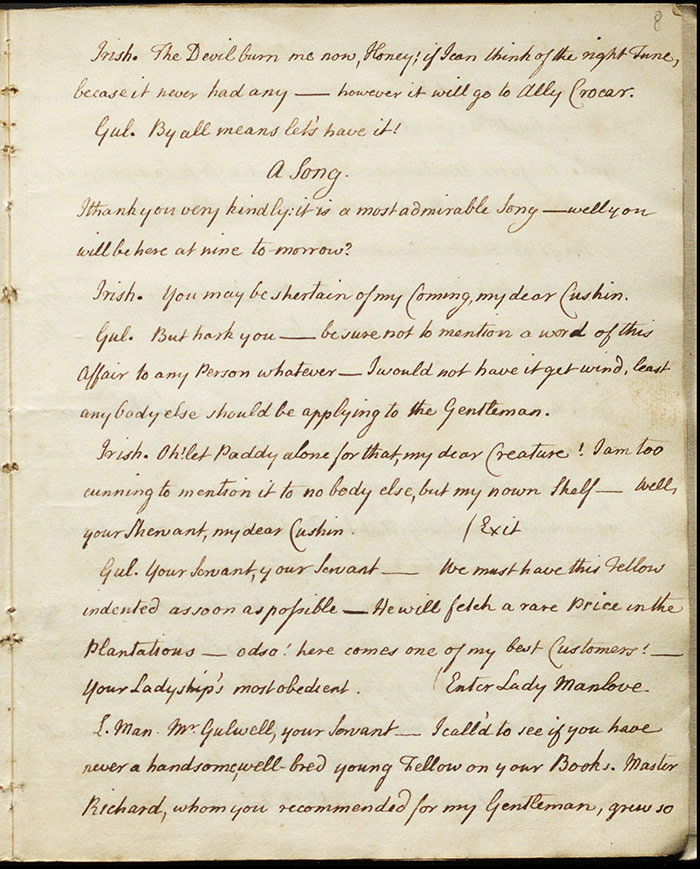 8
Irish. The Devil burn me now, Honey! if I can think of the right Tune,
becase it never had any — however it will go to Ally Crocar.
Gul. By all means let's have it!
A Song.
I thank you very kindly: it is a most admirable Song — well you
will be here at nine to-morrow?
Irish. You may be shertain of my Coming, my dear Cushin.
Gul. But hark you — be sure not to mention a word of this
Affair to any Person whatever — I would not have it get wind, least
any body else should be applying to the Gentleman.
Irish. Oh! let Paddy alone for that, my dear Creature! I am too
cunning to mention it to no body else, but my nown Shelf — Well,
your Shervant, my dear Cushin. (Exit
Gul. Your Servant, your Servant — We must have this Fellow
indented as soon as possible — He will fetch a rare Price in the
Plantations — odso! here comes one of my best Customers! —
Your Ladyship's most obedient. (Enter Lady Manlove
L. Man. Mr. Gulwell, your Servant — I call'd to see if you have
never a handsome, well-bred young Fellow on your Books. Master
Richard, whom you recommended for my Gentleman, grew so